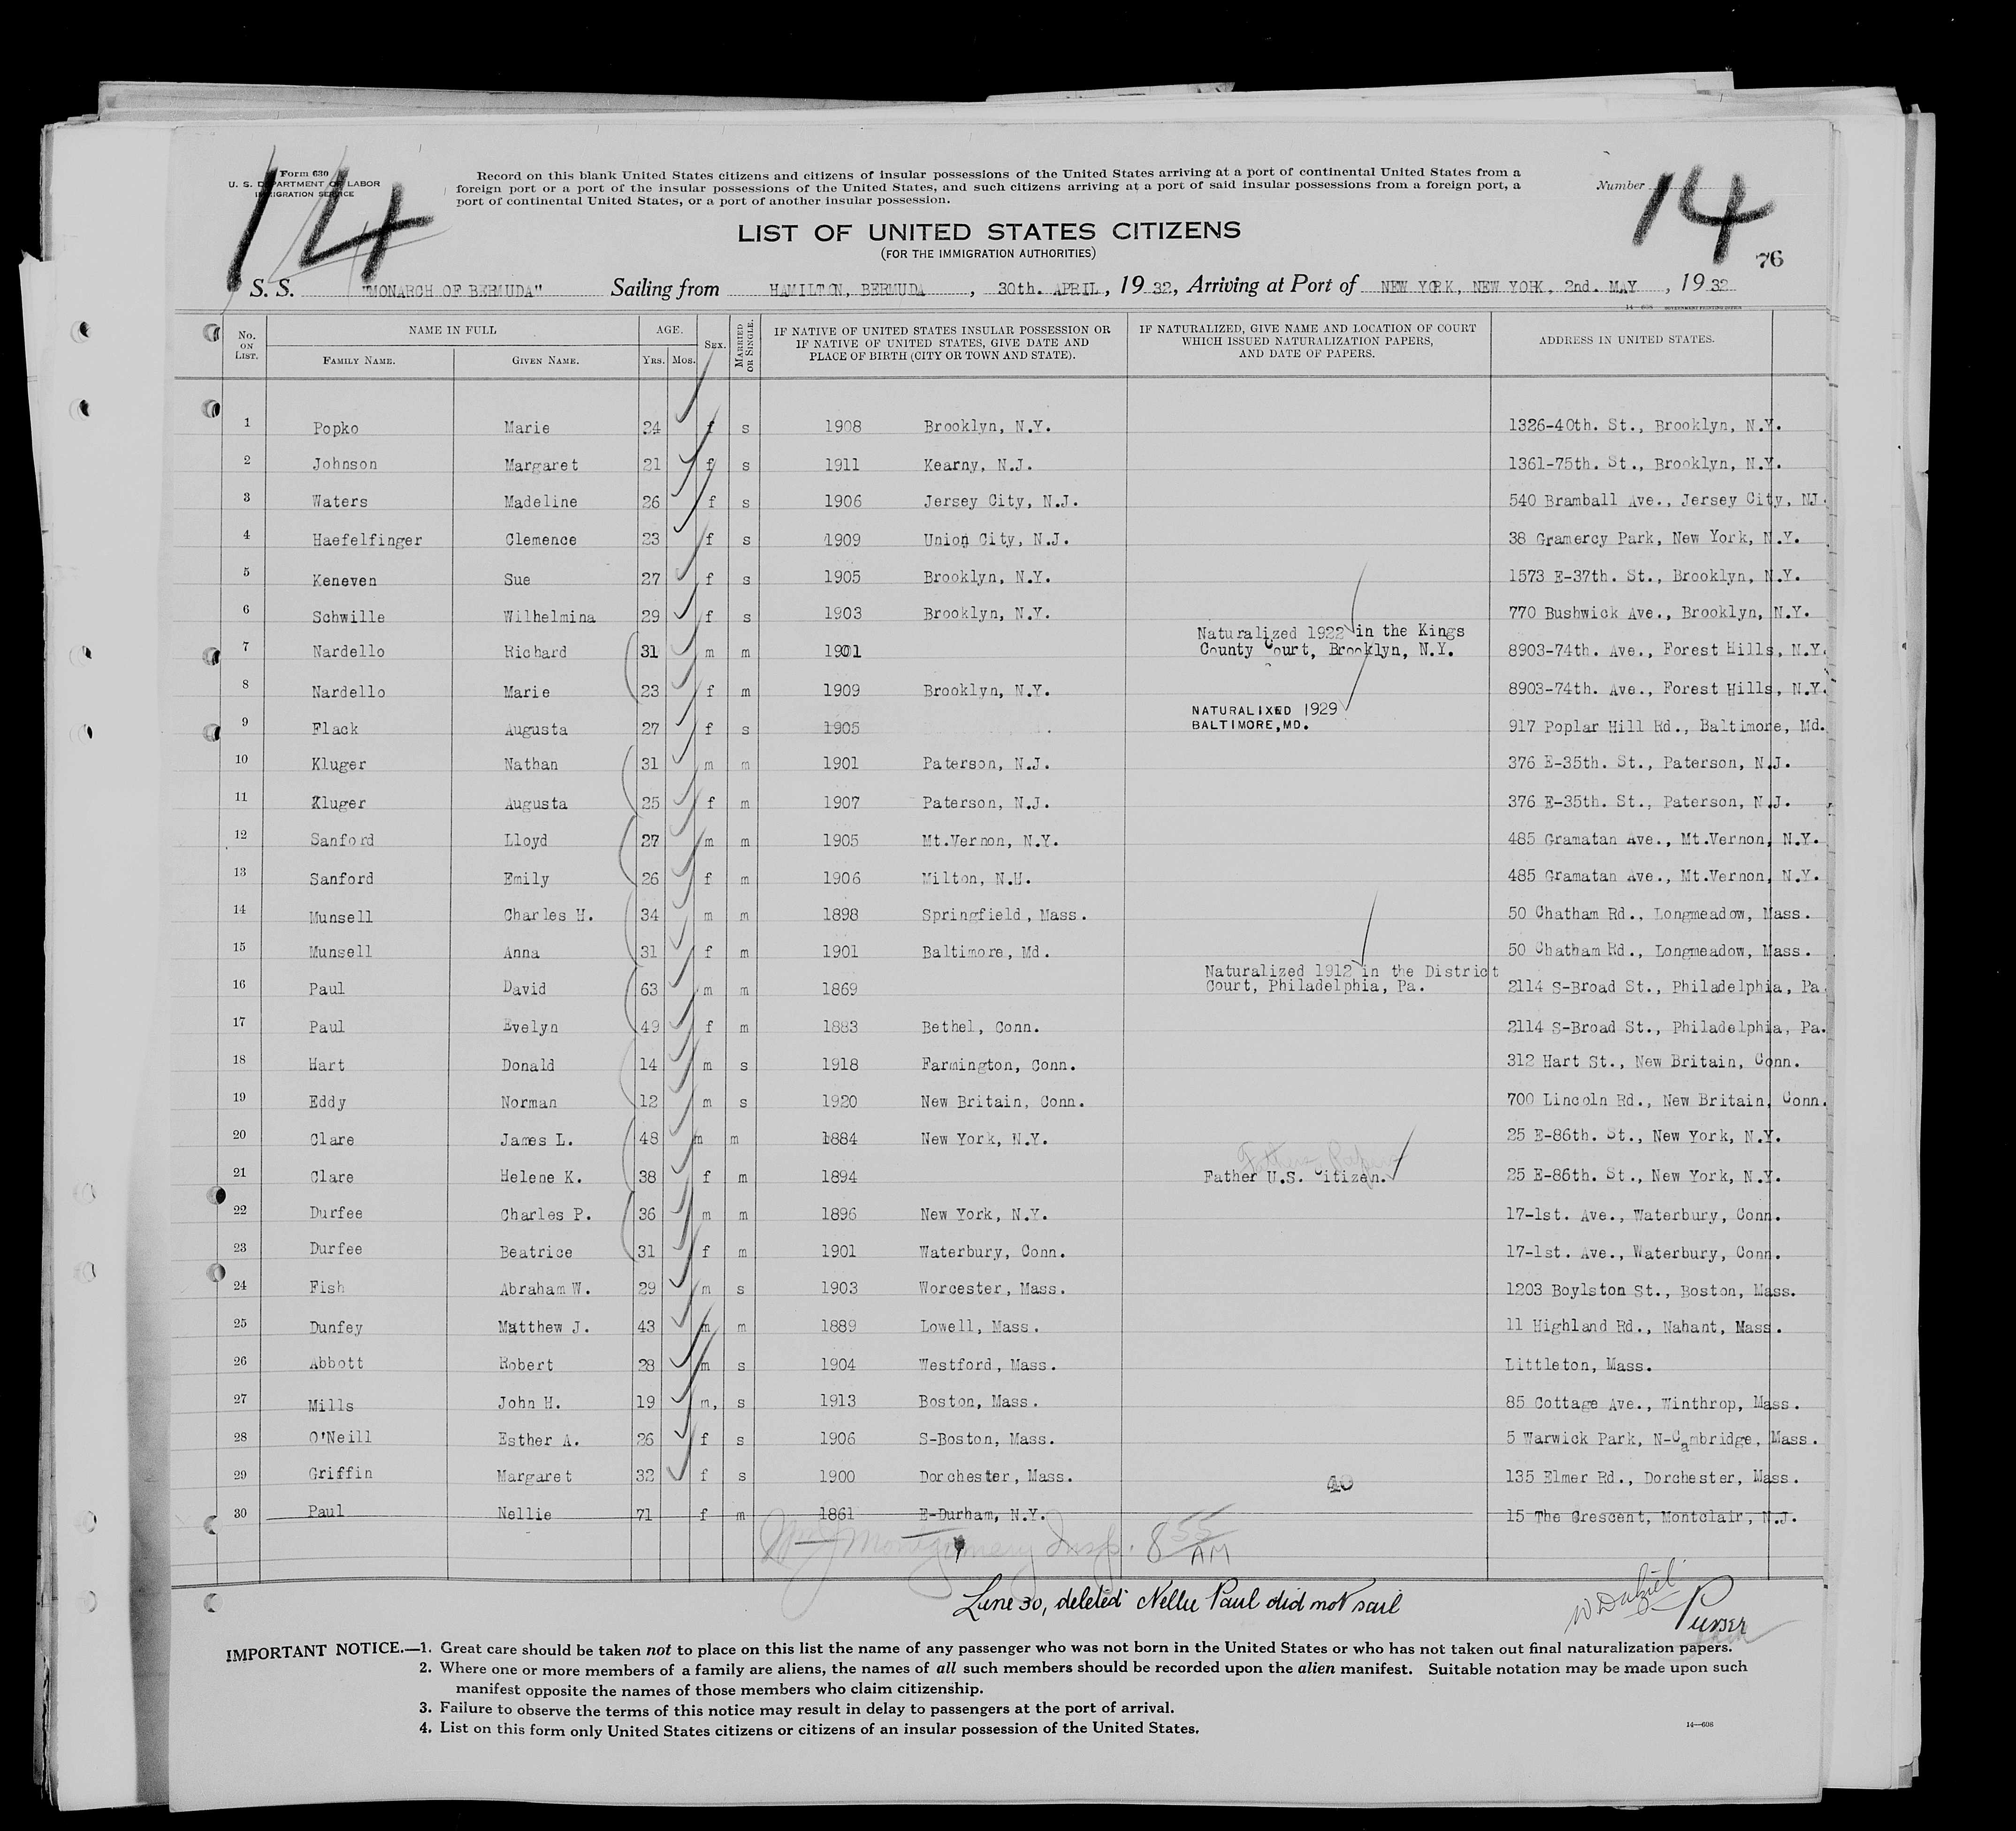 14
Form 630
U. S. DEPARTMENT OF LABOR
IMMIGRATION SERVICE
Record on this blank United States citizens and citizens of insular possessions of the United States arriving at a port of continental United States from a
foreign port or a port of the insular possessions of the United States, and such citizens arriving at a port of said insular possessions from a foreign port, a
port of continental United States, or a port of another insular possession.
Number 14
LIST OF UNITED STATES CITIZENS
(FOR THE IMMIGRATION AUTHORITIES)
76
S. S. "MONARCH OF BERMUDA" Sailing from HAMILTON, BERMUDA, 30th. APRIL, 1932, Arriving at Port of NEW YORK, NEW YORK, 2nd. MAY, 1932
14—608 GOVERNMENT PRINTING OFFICE
No. ON LIST. NAME IN FULL FAMILY NAME. GIVEN NAME. AGE. YRS. MOS. SEX. MARRIED OR SINGLE. IF NATIVE OF UNITED STATES INSULAR POSSESSION OR IF NATIVE OF UNITED STATES, GIVE DATE AND PLACE OF BIRTH (CITY OR TOWN AND STATE). IF NATURALIZED, GIVE NAME AND LOCATION OF COURT WHICH ISSUED NATURALIZATION PAPERS, AND DATE OF PAPERS. ADDRESS IN UNITED STATES.
1 Popko Marie 24 f s 1908 Brooklyn, N.Y. 1326-40th. St., Brooklyn, N.Y.
2 Johnson Margaret 21 f s 1911 Kearny, N.J. 1361-75th. St., Brooklyn, N.Y.
3 Waters Madeline 26 f s 1906 Jersey City, N.J. 540 Bramball Ave., Jersey City, NJ.
4 Haefelfinger Clemence 23 f s 1909 Union City, N.J. 38 Gramercy Park, New York, N.Y.
5 Keneven Sue 27 f s 1905 Brooklyn, N.Y. 1573 E-37th. St., Brooklyn, N.Y.
6 Schwille Wilhelmina 29 f s 1903 Brooklyn, N.Y. 770 Bushwick Ave., Brooklyn, N.Y.
7 Nardello Richard 31 m m 1901 Naturalized 1922 in the Kings County Court, Brooklyn, N.Y. 8903-74th. Ave., Forest Hills, N.Y.
8 Nardello Marie 23 f m 1909 Brooklyn, N.Y. 8903-74th. Ave., Forest Hills, N.Y.
9 Flack Augusta 27 f s 1905 NATURALIXED 1929 BALTIMORE,MD. 917 Poplar Hill Rd., Baltimore, Md.
10 Kluger Nathan 31 m m 1901 Paterson, N.J. 376 E-35th. St., Paterson, N.J.
11 Kluger Augusta 25 f m 1907 Paterson, N.J. 376 E-35th. St., Paterson, N.J.
12 Sanford Lloyd 27 m m 1905 Mt.Vernon, N.Y. 485 Gramatan Ave., Mt.Vernon, N.Y.
13 Sanford Emily 26 f m 1906 Milton, N.H. 485 Gramatan Ave., Mt.Vernon, N.Y.
14 Munsell Charles H. 34 m m 1898 Springfield, Mass. 50 Chatham Rd., Longmeadow, Mass.
15 Munsell Anna 31 f m 1901 Baltimore, Md. 50 Chatham Rd., Longmeadow, Mass.
16 Paul David 63 m m 1869 Naturalized 1912 in the District Court, Philadelphia, Pa. 2114 S-Broad St., Philadelphia, Pa
17 Paul Evelyn 49 f m 1883 Bethel, Conn. 2114 S-Broad St., Philadelphia, Pa.
18 Hart Donald 14 m s 1918 Farmington, Conn. 312 Hart St., New Britain, Conn.
19 Eddy Norman 12 m s 1920 New Britain, Conn. 700 Lincoln Rd., New Britain, Conn.
20 Clare James L. 48 m m 1884 New York, N.Y. 25 E-86th. St., New York, N.Y.
21 Clare Helene K. 38 f m 1894 Father U.S. Citizen. 25 E-86th. St., New York, N.Y.
22 Durfee Charles P. 36 m m 1896 New York, N.Y. 17-1st. Ave., Waterbury, Conn.
23 Durfee Beatrice 31 f m 1901 Waterbury, Conn. 17-1st. Ave., Waterbury, Conn.
24 Fish Abraham W. 29 m s 1903 Worcester, Mass. 1203 Boylston St., Boston, Mass.
25 Dunfey Matthew J. 43 m m 1889 Lowell, Mass. 11 Highland Rd., Nahant, Mass.
26 Abbott Robert 28 m s 1904 Westford, Mass. Littleton, Mass.
27 Mills John H. 19 m, s 1913 Boston, Mass. 85 Cottage Ave., Winthrop, Mass.
28 O'Neill Esther A. 26 f s 1906 S-Boston, Mass. 5 Warwick Park, N-Cambridge, Mass.
29 Griffin Margaret 32 f s 1900 Dorchester, Mass. 40 135 Elmer Rd., Dorchester, Mass.
30 Paul Nellie 71 f m 1861 E-Durham, N.Y. 15 The Crescent, Montclair, N.J.
Wm J Montgomery Insp. 8 55 AM
Line 30, deleted Nellie Paul did not sail
Purser
IMPORTANT NOTICE.—1. Great care should be taken not to place on this list the name of any passenger who was not born in the United States or who has not taken out final naturalization papers.
2. Where one or more members of a family are aliens, the names of all such members should be recorded upon the alien manifest. Suitable notation may be made upon such
manifest opposite the names of those members who claim citizenship.
3. Failure to observe the terms of this notice may result in delay to passengers at the port of arrival.
4. List on this form only United States citizens or citizens of an insular possession of the United States.
14—608